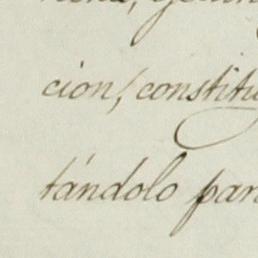 cion, constitu
tándolo par